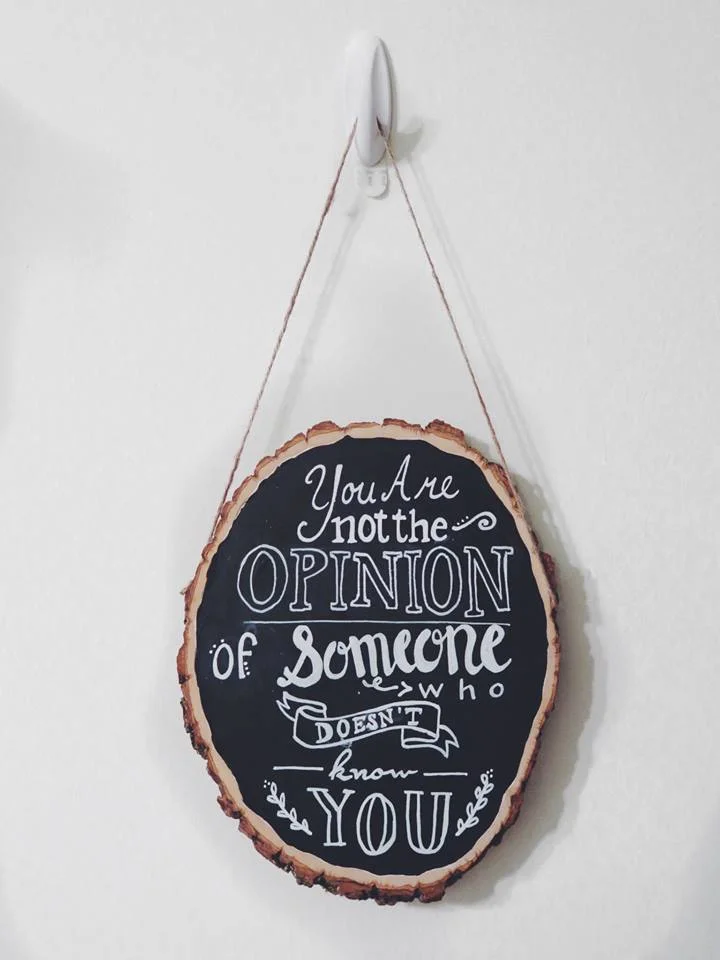 You Are
not the
OPINION
of Someone
who
DOESN'T
know
YOU